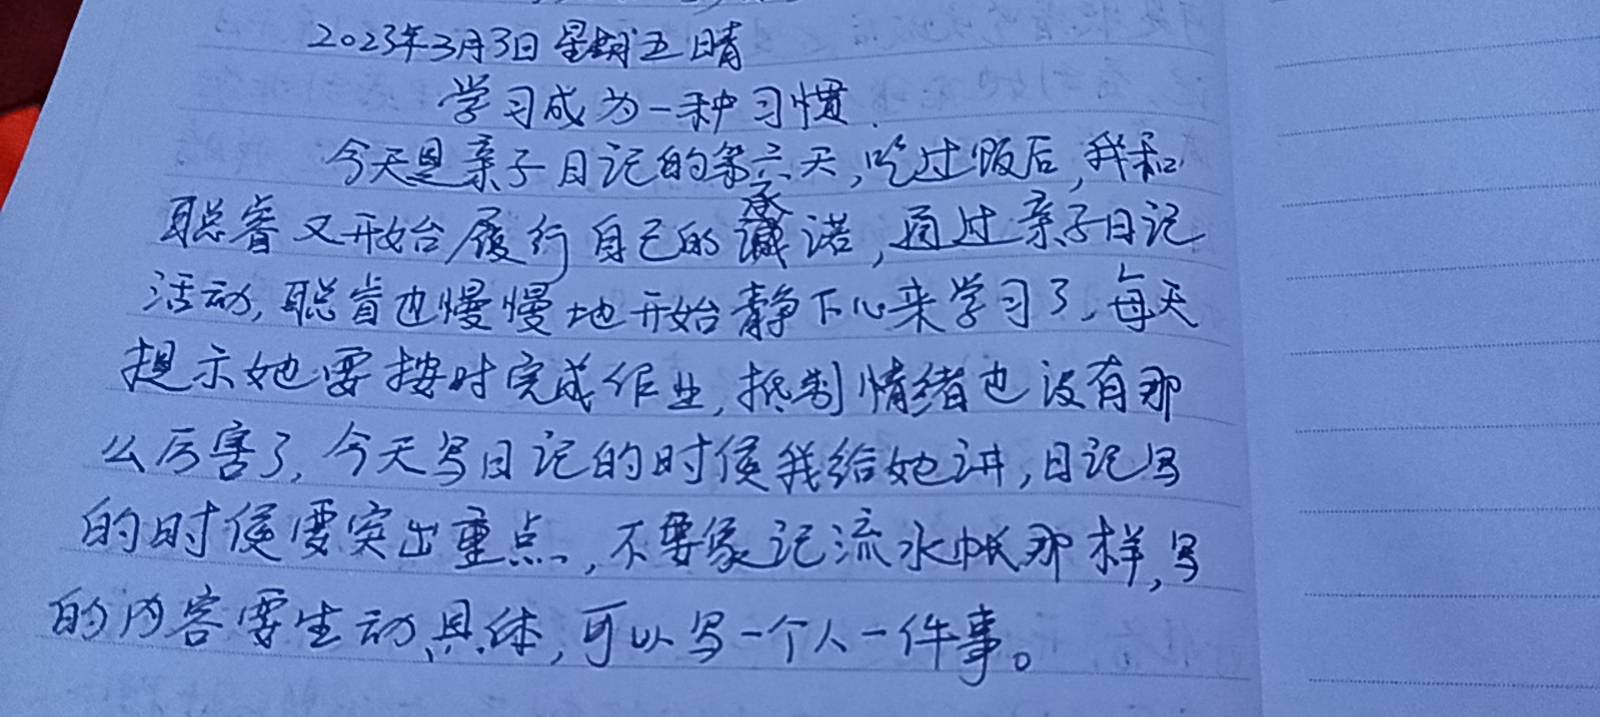 2023年3月3日 星期五 晴
学习成为一种习惯.
今天是亲子日记的第六天,吃过饭后,我和
聪睿又开始履行自己的承诺,通过亲子日记
活动,聪睿也慢慢地开始静下心来学习了,每天
提示她要按时完成作业,抵制情绪也没有那
么厉害了,今天写日记的时侯我给她讲,日记写
的时侯要突出重点,不要象记流水帐那样,写
的内容要生动具体,可以写一个人一件事。